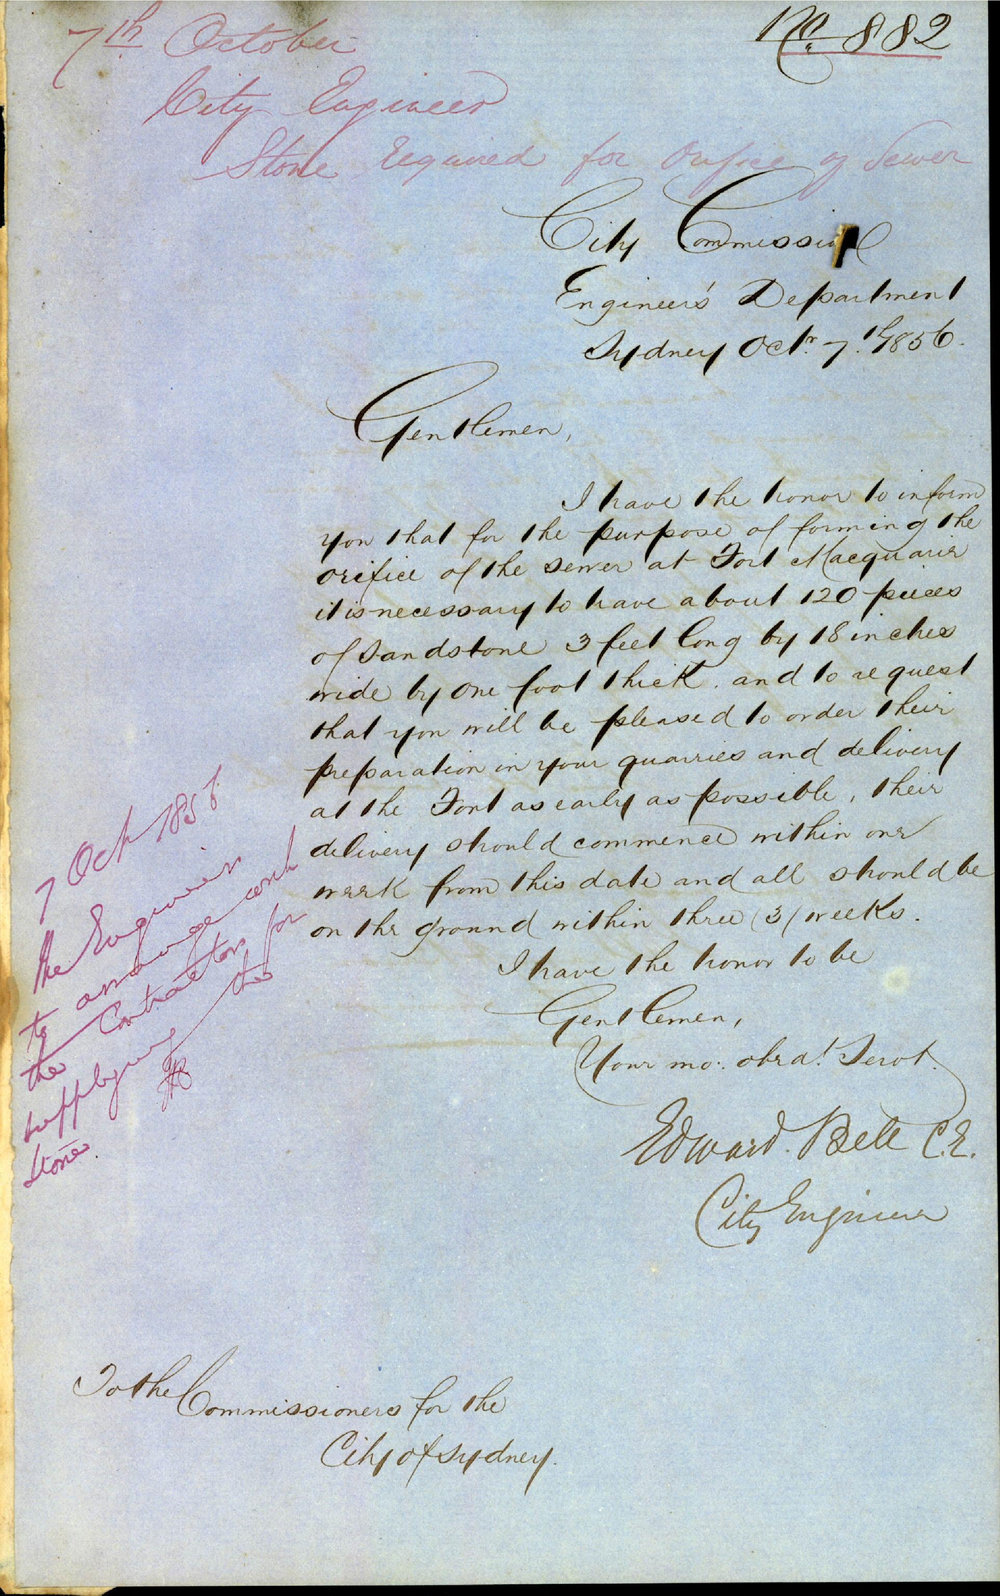 No. 882
7th October
City Engineer
Stone required for Orifice of Sewer
City Commission
Engineer's Department
Sydney Octr. 7th 1856.
Gentlemen,
I have the honor to inform
you that for the purpose of forming the
orifice of the sewer at Fort Macquarie
it is necessary to have about 120 pieces
of Sandstone 3 feet long by 18 inches
wide by one foot thick. and to request
that you will be pleased to order their
preparation in your quarries and delivery
at the Fort as early as possible, their
delivery should commence within one
week from this date and all should be
on the ground within three (3) weeks.
I have the honor to be
Gentlemen,
Your mo: obedt. Servt.
Edward Bell C.E.
City Engineer
7 Oct 1856
The Engineer
to arrange with
the Contractor for
supplying the
Stone.
To the Commissioners for the
City of Sydney.